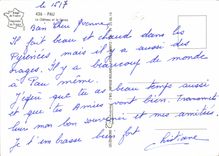 le 15/7
436 - PAU
Le Château et le Gave
Bien chère Yvonne,
Il fait beau et chaud dans les
Pyrénées mais il y a aussi des
orages. Il y a beaucoup de monde
à Pau même.
J'espère que tu as beau temps aussi
et que tes Amies vont bien. Transmets
leur mon bon souvenir et mes amitiés.
Je t'embrasse bien fort
Christiane